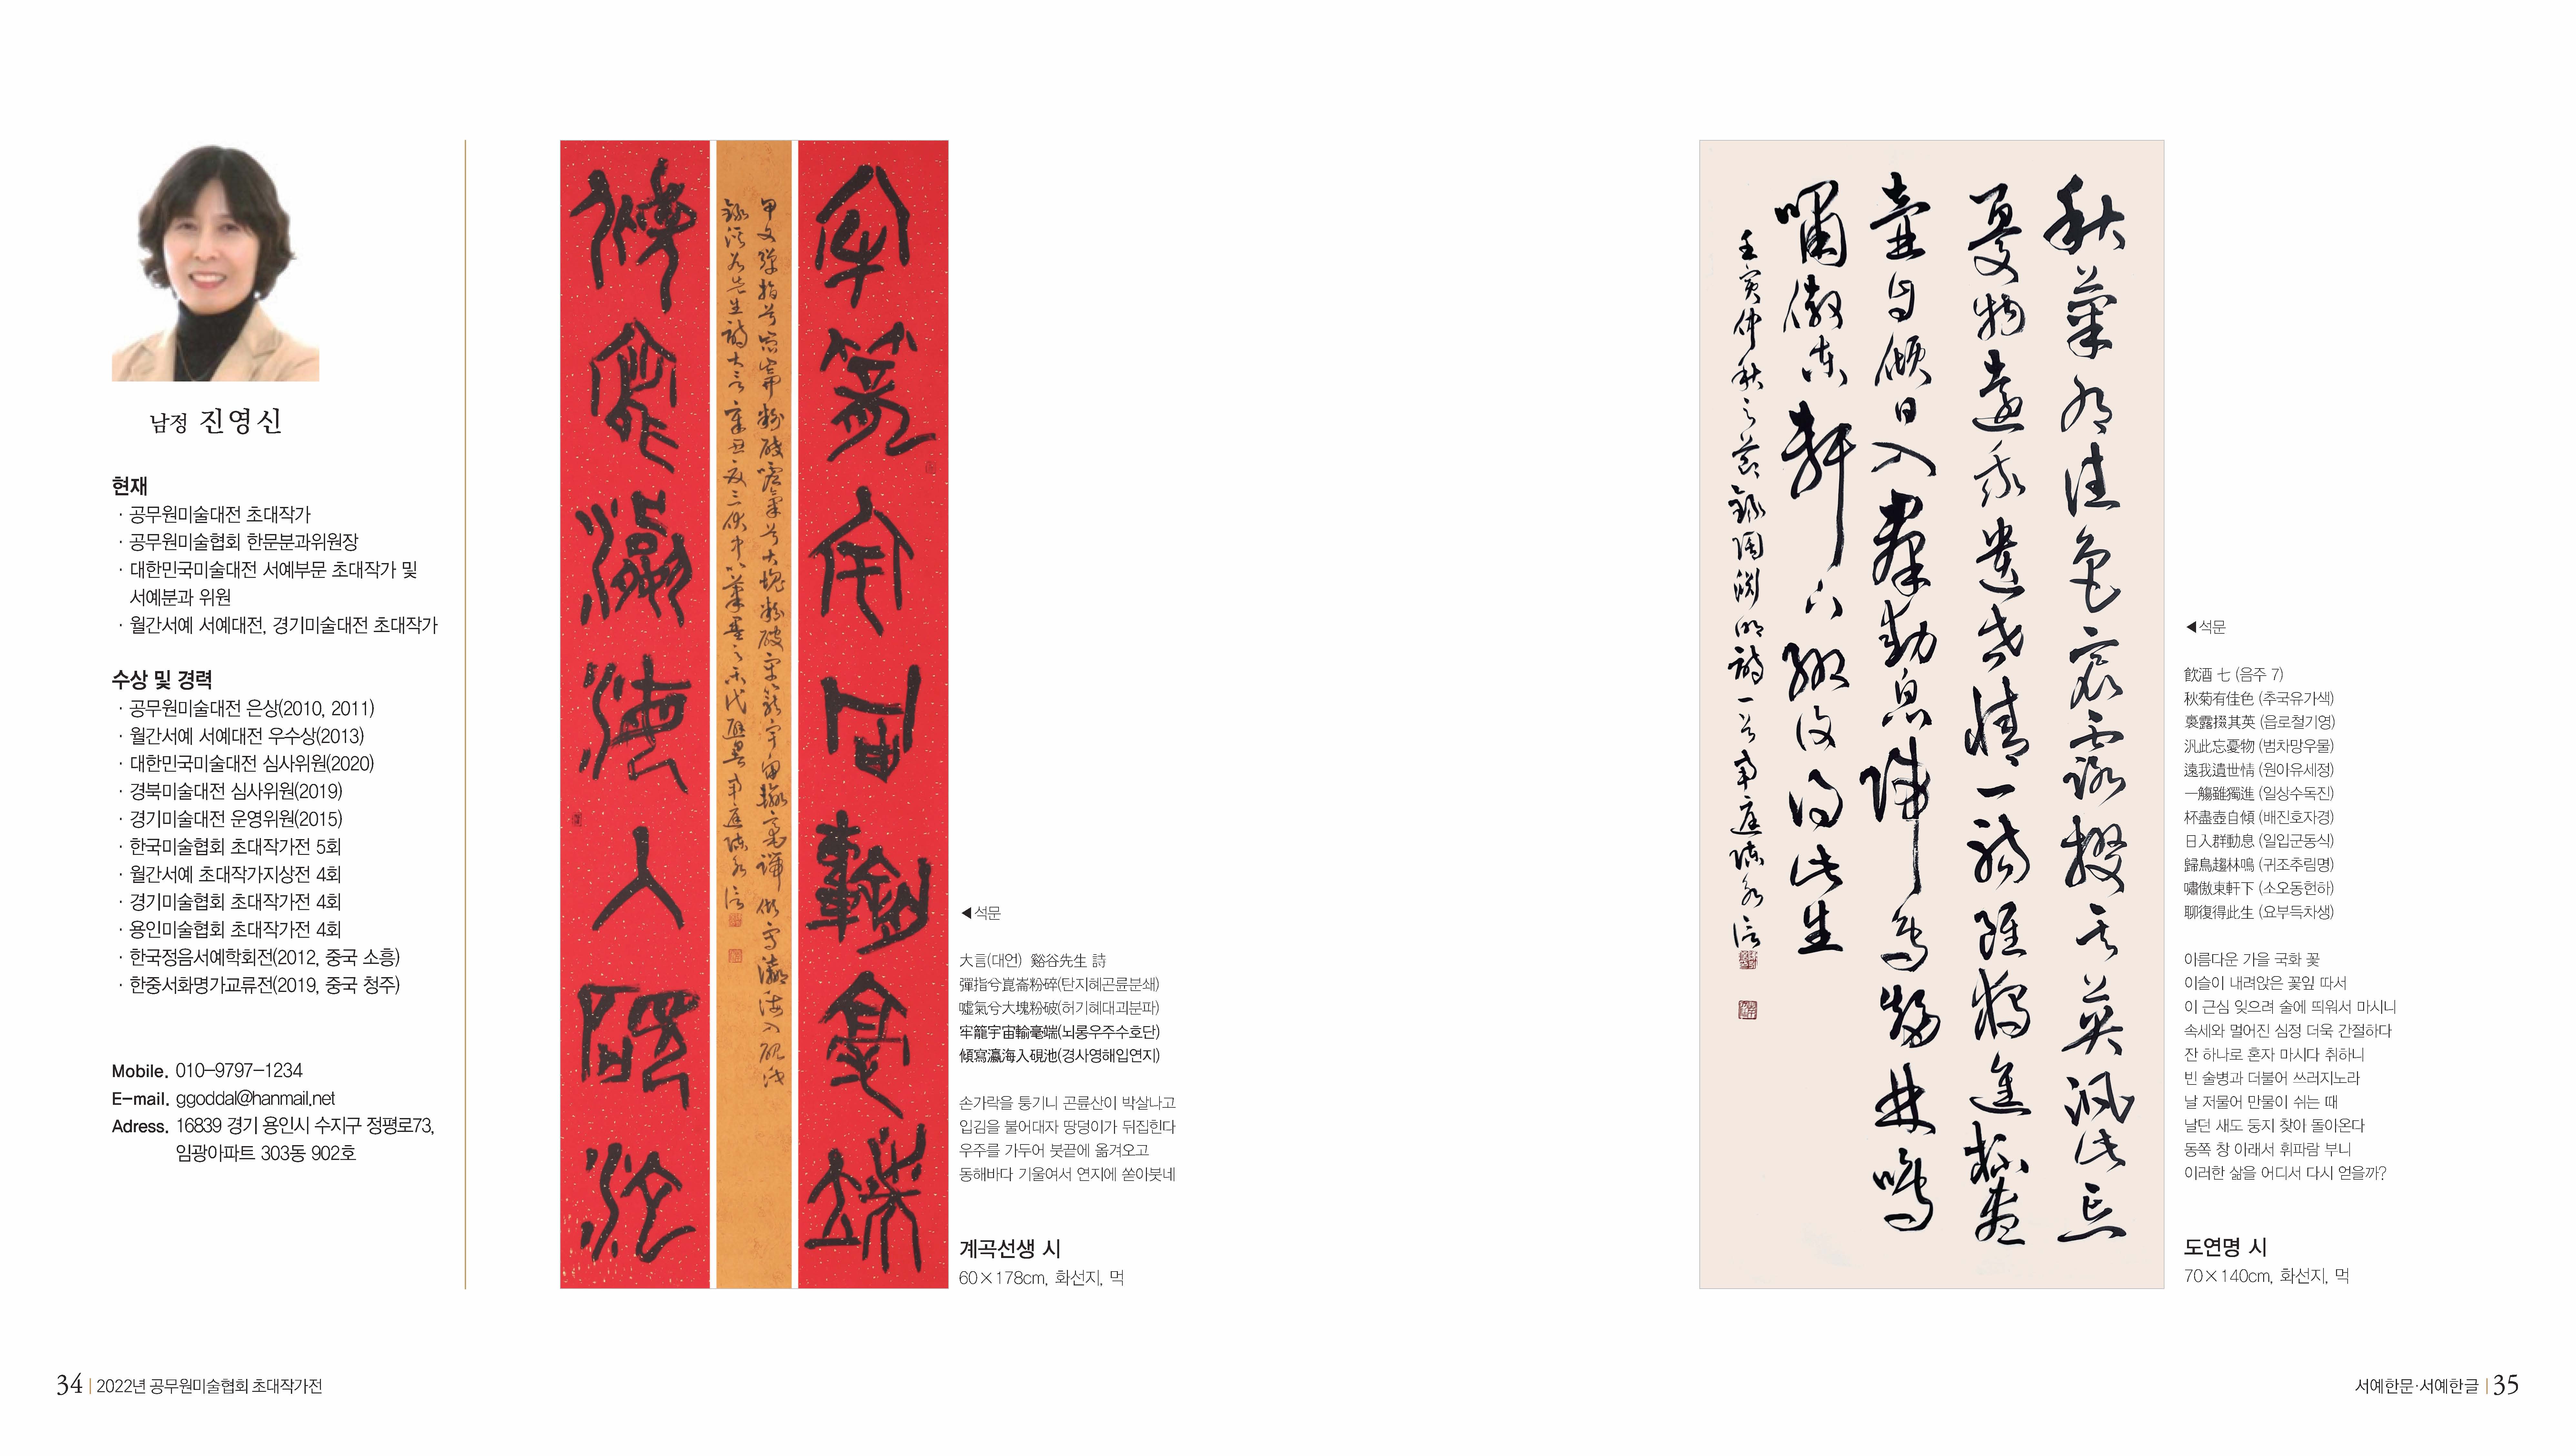 남정 진영신
현재
· 공무원미술대전 초대작가
· 공무원미술협회 한문분과위원장
· 대한민국미술대전 서예부문 초대작가 및
서예분과 위원
· 월간서예 서예대전, 경기미술대전 초대작가
수상 및 경력
· 공무원미술대전 은상(2010, 2011)
· 월간서예 서예대전 우수상(2013)
· 대한민국미술대전 심사위원(2020)
· 경북미술대전 심사위원(2019)
· 경기미술대전 운영위원(2015)
· 한국미술협회 초대작가전 5회
· 월간서예 초대작가지상전 4회
· 경기미술협회 초대작가전 4회
· 용인미술협회 초대작가전 4회
· 한국정음서예학회전(2012, 중국 소흥)
· 한중서화명가교류전(2019, 중국 청주)
Mobile. 010-9797-1234
E-mail. ggoddal@hanmail.net
Adress. 16839 경기 용인시 수지구 정평로73,
임광아파트 303동 902호
牢籠宇宙輸毫端
傾寫瀛海入硯池
◀석문
大言(대언) 谿谷先生 詩
彈指兮崑崙粉碎(탄지혜곤륜분쇄)
噓氣兮大塊粉破(허기혜대괴분파)
牢籠宇宙輸毫端(뇌롱우주수호단)
傾寫瀛海入硯池(경사영해입연지)
손가락을 퉁기니 곤륜산이 박살나고
입김을 불어대자 땅덩이가 뒤집힌다
우주를 가두어 붓끝에 옮겨오고
동해바다 기울여서 연지에 쏟아붓네
계곡선생 시
60×178cm, 화선지, 먹
34 | 2022년 공무원미술협회 초대작가전
秋菊有佳色裛露掇其英汎此忘
憂物遠我遺世情一觴雖獨進杯盡
壺自傾日入群動息歸鳥趨林鳴
嘯傲東軒下聊復得此生
壬寅仲秋之節錄陶淵明詩一首南庭陳永信
◀석문
飮酒 七 (음주 7)
秋菊有佳色 (추국유가색)
裛露掇其英 (읍로철기영)
汎此忘憂物 (범차망우물)
遠我遺世情 (원아유세정)
一觴雖獨進 (일상수독진)
杯盡壺自傾 (배진호자경)
日入群動息 (일입군동식)
歸鳥趨林鳴 (귀조추림명)
嘯傲東軒下 (소오동헌하)
聊復得此生 (요부득차생)
아름다운 가을 국화 꽃
이슬이 내려앉은 꽃잎 따서
이 근심 잊으려 술에 띄워서 마시니
속세와 멀어진 심정 더욱 간절하다
잔 하나로 혼자 마시다 취하니
빈 술병과 더불어 쓰러지노라
날 저물어 만물이 쉬는 때
날던 새도 둥지 찾아 돌아온다
동쪽 창 아래서 휘파람 부니
이러한 삶을 어디서 다시 얻을까?
도연명 시
70×140cm, 화선지, 먹
서예한문·서예한글 | 35